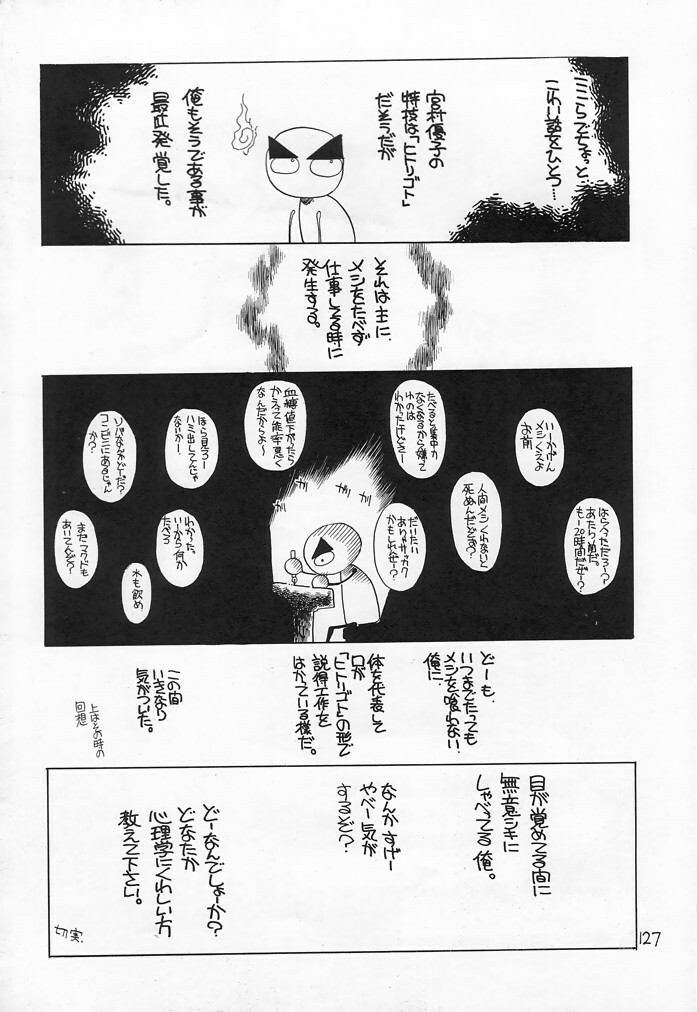 ここらでちょっと…
こわい話をひとつ…
宮村優子の
特技は「ヒトリゴト」
だそうだが
俺もそうである事が
最近発覚した。
それは主に
メシをたべず
仕事してる時に
発生する。
いーかげん
メシくえよ
お前
たべると集中力
なくなるから嫌て
わのは
わかったけどさー
血糖値下がったら
かえって能率悪く
なんだからよ〜
ほら見ろー
ハミ出してんじゃ
ないかー。
ソバなんかどーだ?
コンビニにあるじゃん
か?
はらへってんだろー?
あたり前だ。
もー20時間だぜー?
人間メシくわないと
死ぬんだとさ?
だいたい
ありゃサッカク
かもしれねー?
わかった。
いーから何か
たべろ
水も飲め
まだマクドも
あいてんぞ?
ガ
ガ
ガ
どーも、
いつまでたっても
メシを喰わない
俺に、
体を代表して
口が
「ヒトリゴト」の形で
説得工作を
はかっている様だ。
この間
いきなり
気がついた。
上はその時の
回想
目が覚めてる間に
無意シキに
しゃべってる俺。
なんかすげー
やべー気が
するぞ?
どーなんでしょーか?
どなたか
心理学にくわしい方
教えて下さい。
切実.
127